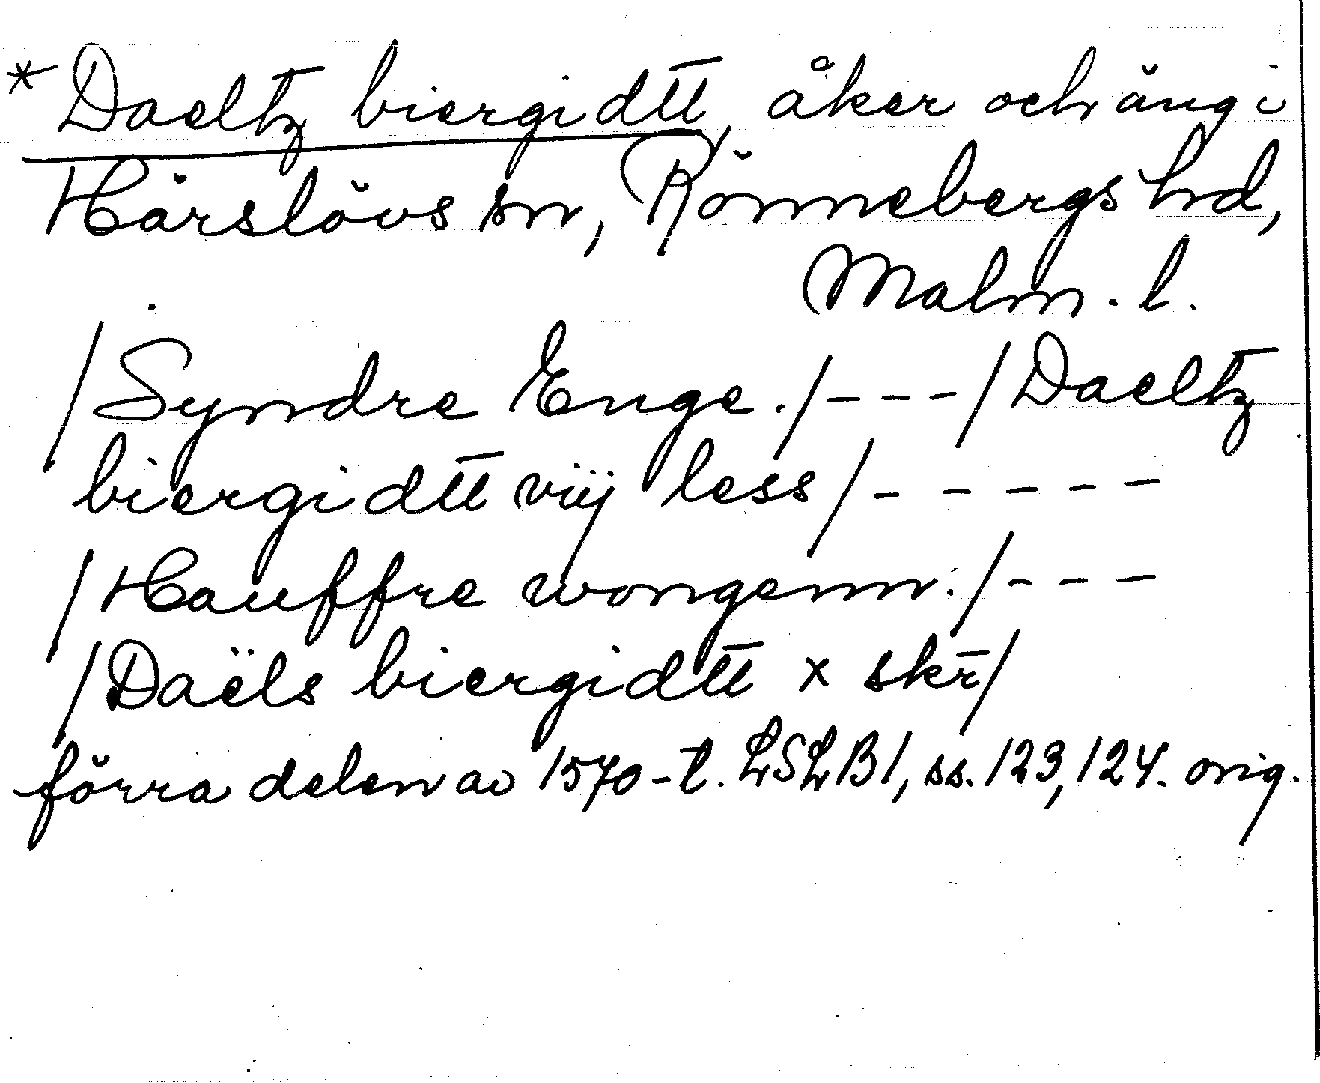 * Daeltz biergidtt, åker och äng i
Härslövs sn, Rönnebergs hd,
Malm. l.
/Syndre Enge./---/Daeltz
biergidtt viij less/-----
/Hauffre wongenn./---
/Daëls biergidtt x skr̄/
förra delen av 1570-t. LSLB1, ss. 123, 124. orig.